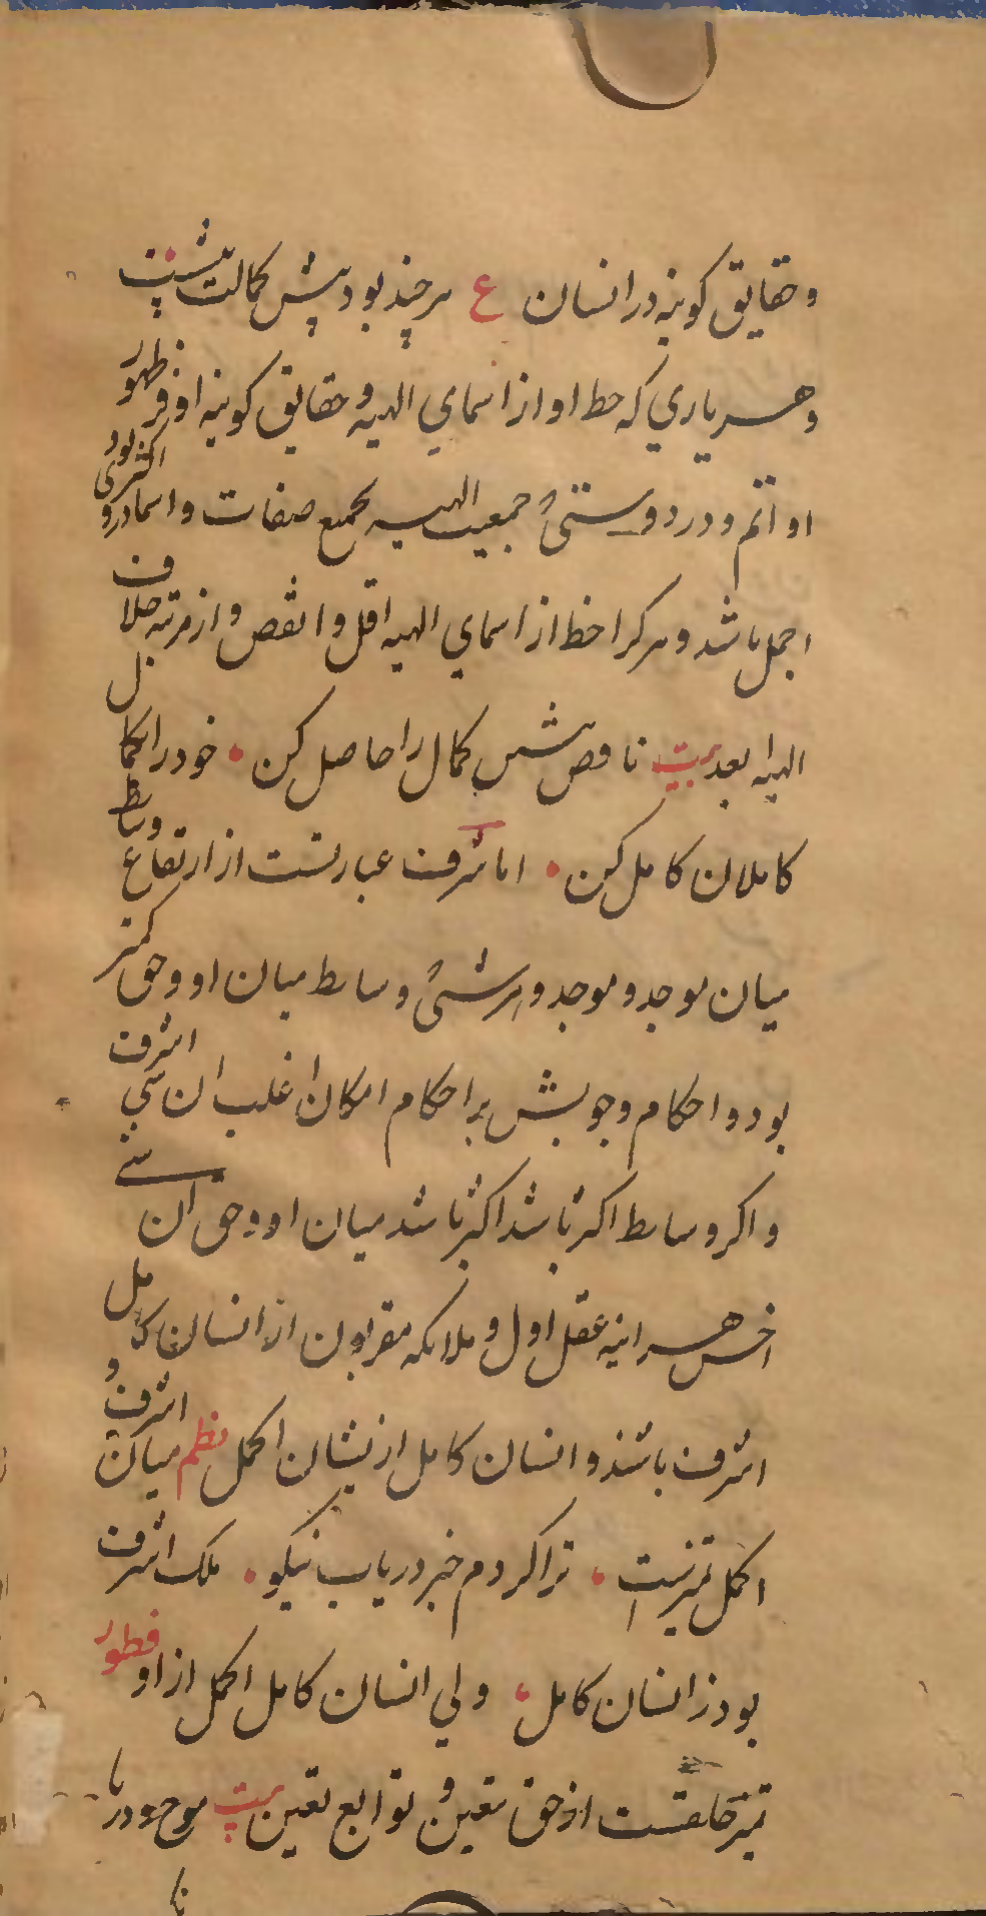 وحقایق کونیه در انسان ع هرچند بود بیش کمالت بیشت
وهر یاری که حظ او از اسمای الهیه و حقایق کونیه اوفر ظهور
او اتم و در دوستئ جمعیت الهیه بجمیع صفات و اسما در وی اکثر بود
اجمل باشد و هر کرا حظ از اسمای الهیه اقل و انقص و از مرتبه خلاف
الهیه ابعد بیت ناقص کمال را حاصل کن خود را بکمال
کاملان کامل کن اما شرف عبارتست از ارتفاع وسایط
میان موجد و موجد و هر شئ وسایط میان او و حق کمتر
بود و احکام وجوبش بر احکام امکان اغلب ان شی اشرف
واکر وسایط اکثر باشد اکثر باشد میان او و حق ان شی
اخس هر اینه عقل اول و ملایکه مقربون از انسان کامل
اشرف باشند و انسان کامل ازیشان اکمل نظم میان اشرف و
اکمل تمیزیست ترا کردم خبر دریاب نیکو ملک اشرف
بود ز انسان کامل ولی انسان کامل اکمل از او فطور
تمیز خلقست از حق بتعین و توابع تعین بیت موج و دریا